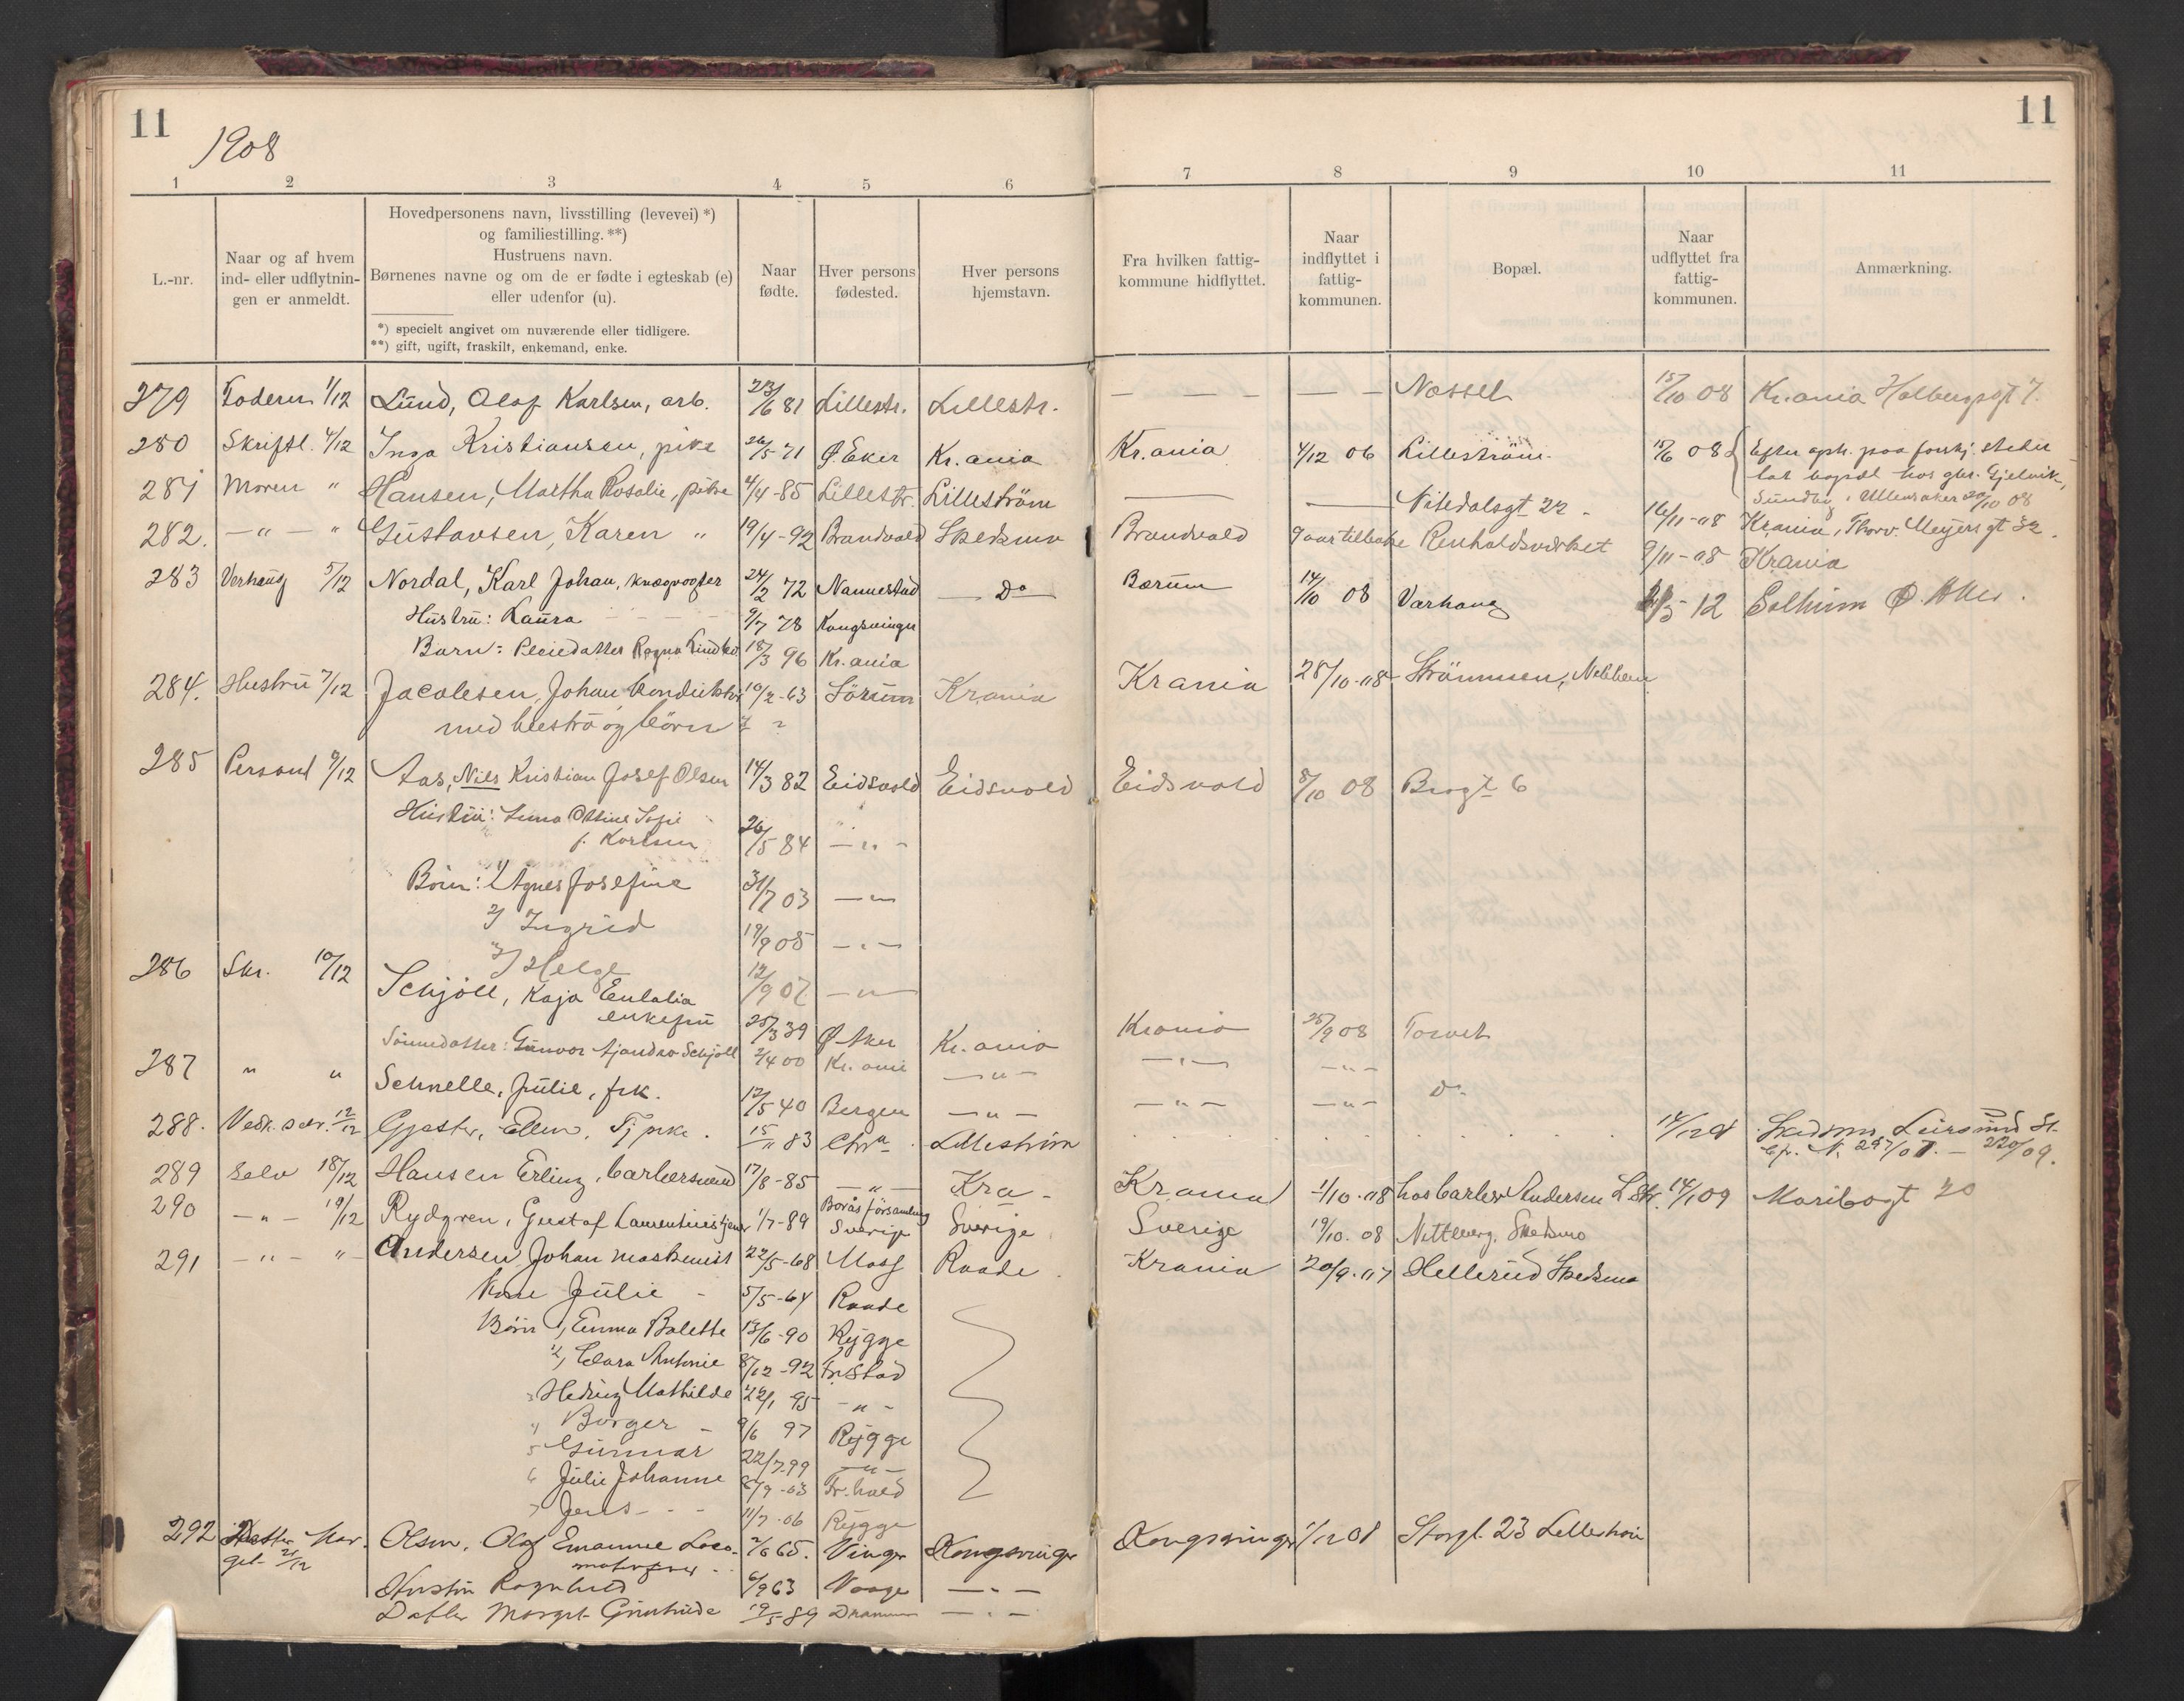 11
11
1908
1 2 3 4 5 6 7 8 9 10 11
L.-nr.
Naar og af hvem
ind- eller udflytnin-
gen er anmeldt.
Hovedpersonens navn, livsstilling (levevei) *)
og familiestilling. **)
Hustruens navn.
Børnenes navne og om de er fødte i egteskab (e)
eller udenfor (u).
*) specielt angivet om nuværende eller tidligere.
**) gift, ugift, fraskilt, enkemand, enke.
Naar
fødte.
Hver persons
fødested.
Hver persons
hjemstavn.
Fra hvilken fattig-
kommune hidflyttet.
Naar
indflyttet i
fattig-
kommunen.
Bopæl.
Naar
udflyttet fra
fattig-
kommunen.
Anmærkning.
279 1/12 Lund, Olaf Karlsen, arb. 23/6 81 Lillestr. Lillestr. — — — — — 15/10 08 Kr.ania Holbergsgt 7.
280 Skriftl. 4/12 Inga Kristiansen, pike 26/5 71 Ø. Eker Kr.ania Kr.ania 4/12 06 Lilleström 15/6 08
281 Moren " Hansen, Martha Rosalie, 4/4-85 Lillestr. Lilleström — — Nitedalsgt 22 16/11-08 Krania, Thorv. Meyers gt 32.
Sundby i Ullensaker 20/10 08
282. — " — " Gustavsen, Karen " 19/4-92 Brandvold Skedsmo Brandvold Renholdsverket 9/11-08 Krania
283 5/12 Nordal, Karl Johan, 24/2 72 Nannestad — Do — Bærum 14/10 08 Varhaug 12 Ø. Aker.
Hustru: Laura 9/7 78 Kongsvinger
Barn: Pleiedatter Ragna 18/3 96 Kr.ania
284. Hustru 7/12 Jacobsen, Johan konduktør 10/2-63 Sörum Krania Krania 28/10-08 Strömmen,
med hustru og börn
285 Personl 9/12 Aas, Nils Kristian Josef Olsen 14/3 82 Eidsvold Eidsvold Eidsvold 8/10 08 Brogt 6
Hustru: Ottine Sofie
f. Karlsen 26/5 84 — " —
Börn: 1/ Agnes Josefine 31/7 03 — " —
2/ Ingrid 19/9 05 — " —
3/ Helge 12/9 07 — " —
286 Skr. 10/12 Schjöll, Kaja Eulalia
enkefru 25/3 39 Ø. Aker Kr.ania Krania 25/9 08 Torvet
Sönnedatter: Gunvor Schjöll 2/4 00 Kr.ania — " — — " — — " —
287 " " Schnelle, Julie, frk. 12/5 40 Bergen — " — — " — — " — Do
288. 12/12 Ellen, Tj pike. 15/11 83 Chra. Lilleström 14/12 08 Skedsmo, Leirsund St.
289 Selv 18/12 Hansen Erling, barbersvend 17/8-85 — " — Kra - Krania 1/10-08 hos barber Andersen L.Str. 14/1 09 Maribogt 20
290 — " — 19/12 Rydgren, Gustaf Laurentius 1/7-89 Borås församling
Sverige Sverige Sverige 19/10. 08 Skedsmo
291 — " — " Andersen Johan maskinist 22/5-68 Moss Raade Krania 20/9-07 Hellerud Skedsmo
Kone Julie - 5/5-64 Raade
Börn 1, Emma Balette 13/6-90 Rygge
2, Clara Antonie 8/12-92 Fr.stad
3 Hedvig Mathilde 22/1 95 - " -
4 Borger 9/6 97 Rygge
5 Gunnar 22/7-99 — " —
6 Julie Johanne 8/9-03 Fr.hald
7 Jens - - - 11/7-06 Rygge
292 21/12 Olsen, Olaf Emanuel Loco-
motivfører 2/6 65. Vinger Kongsvinger Kongsvinger 1/12 08 Storgt. 23 Lilleström
Hustru Ragnhild 6/9 63 Vaage — " —
Datter Margit Gertrude 19/5 89 Drammen — " —